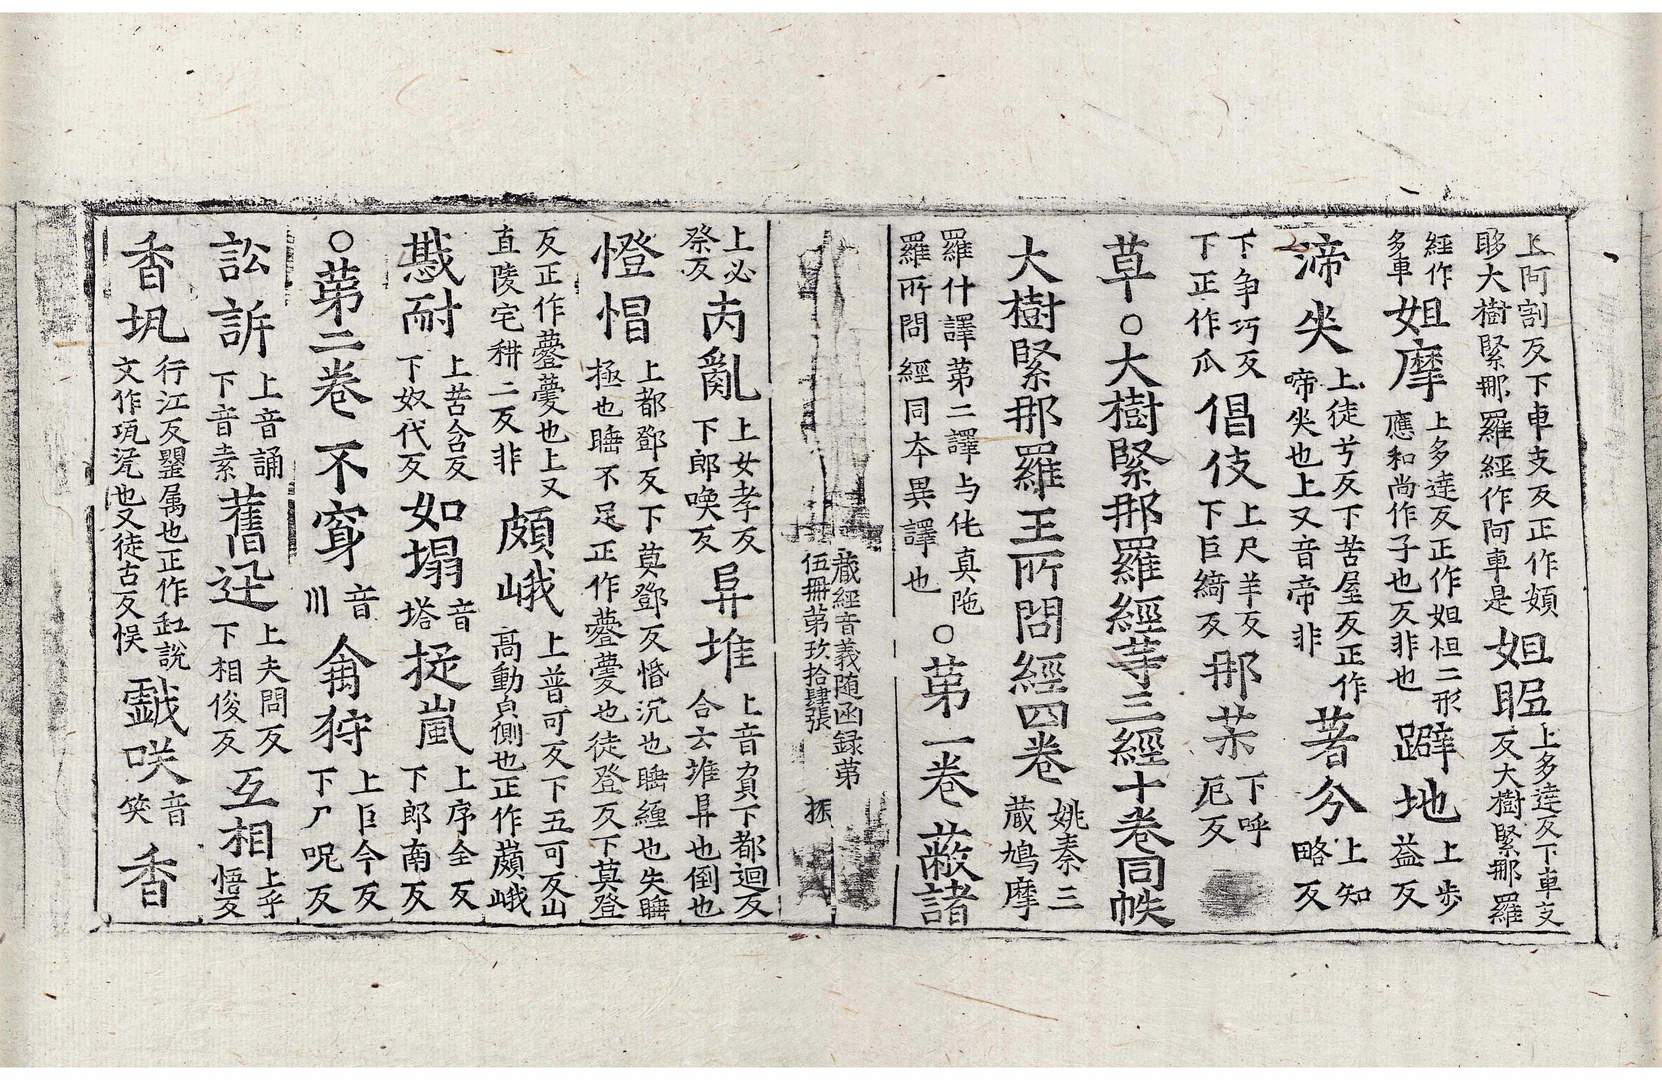 上阿割反下車支反正作頞
䏧大樹緊那羅經作阿車是
姐眲
上多達反下車支
反大樹緊那羅
經作
多車
姐摩
上多達反正作妲怛二形
應和尚作子也反非也
躃地
上歩
益反
渧㘴
上徒兮反下苦屋反正作
啼㘴也上又音帝非
著分
上知
略反
下争巧反
下正作爪
倡伎
上尺羊反
下巨綺反
那茉
下呼
厄反
草○大樹緊那羅經等三經十卷同帙
大樹緊那羅王所問經四卷
姚秦三
蔵鳩摩
羅什譯第二譯与仛真陁
羅所問經同本異譯也
○第一卷
蔽諸
蔵經音義随函録第
伍冊第玖拾肆張
振
上必
祭反
㐫亂
上女孝反
下郎喚反
㠯堆
上音負下都迴反
合云堆㠯也倒也
憕㡌
上都鄧反下莫鄧反惛沉也䁅緾也失䁅
極也䁅不足正作㽅䒐也徒登反下莫登
反正作䕷䒐也上又
直陵宅耕二反非
頗峨
上普可反下五可反山
高動㒵側也正作㔽峨
戡耐
上苦含反
下奴代反
如塌
音
塔
㨗嵐
上序全反
下郎南反
○第二卷
不穿
音
川
禽狩
上巨今反
下尸呪反
訟訴
上音誦
下音素
舊迅
上夫問反
下相俊反
互相
上乎
悟反
香㺬
行江反甖属也正作缸説
文作㼚瓨也又徒古反悮
戯咲
音
笑
香